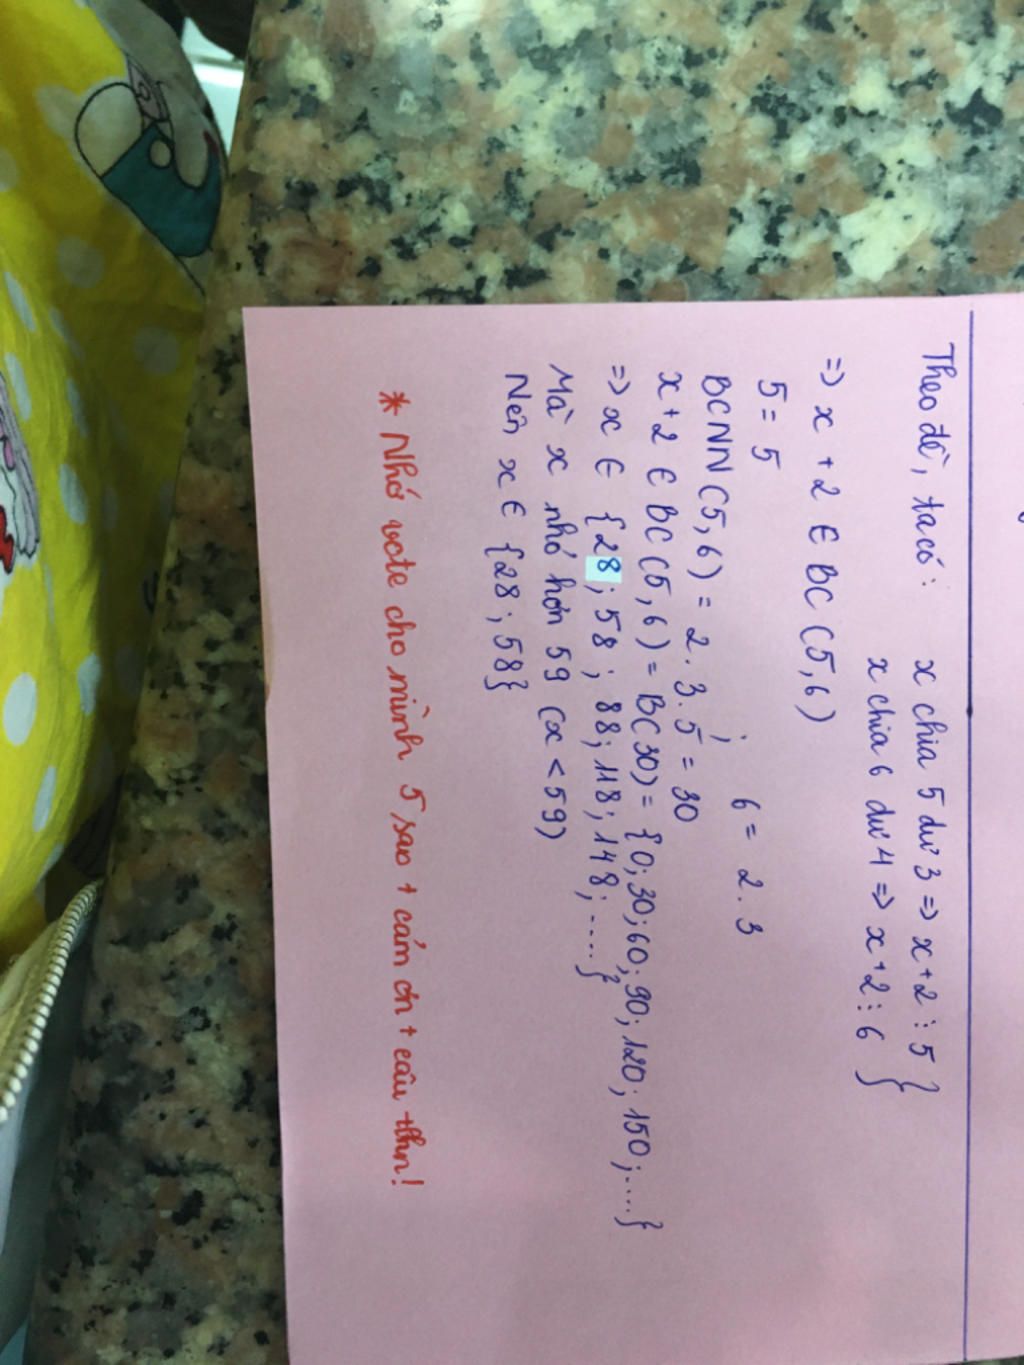 Theo đề, ta có: x chia 5 dư 3 => x+2 ⋮ 5 }
x chia 6 dư 4 => x+2 ⋮ 6 }
=> x + 2 ∈ BC (5,6)
5 = 5 ; 6 = 2.3
BCNN (5,6) = 2.3.5 = 30
x+2 ∈ BC (5,6) = BC 30) = {0; 30; 60; 90; 120; 150; ....}
=> x ∈ {28; 58; 88; 118; 148; ....}
Mà x nhỏ hơn 59 (x < 59)
Nên x ∈ {28; 58}
* Nhớ vote cho mình 5 sao + cám ơn +